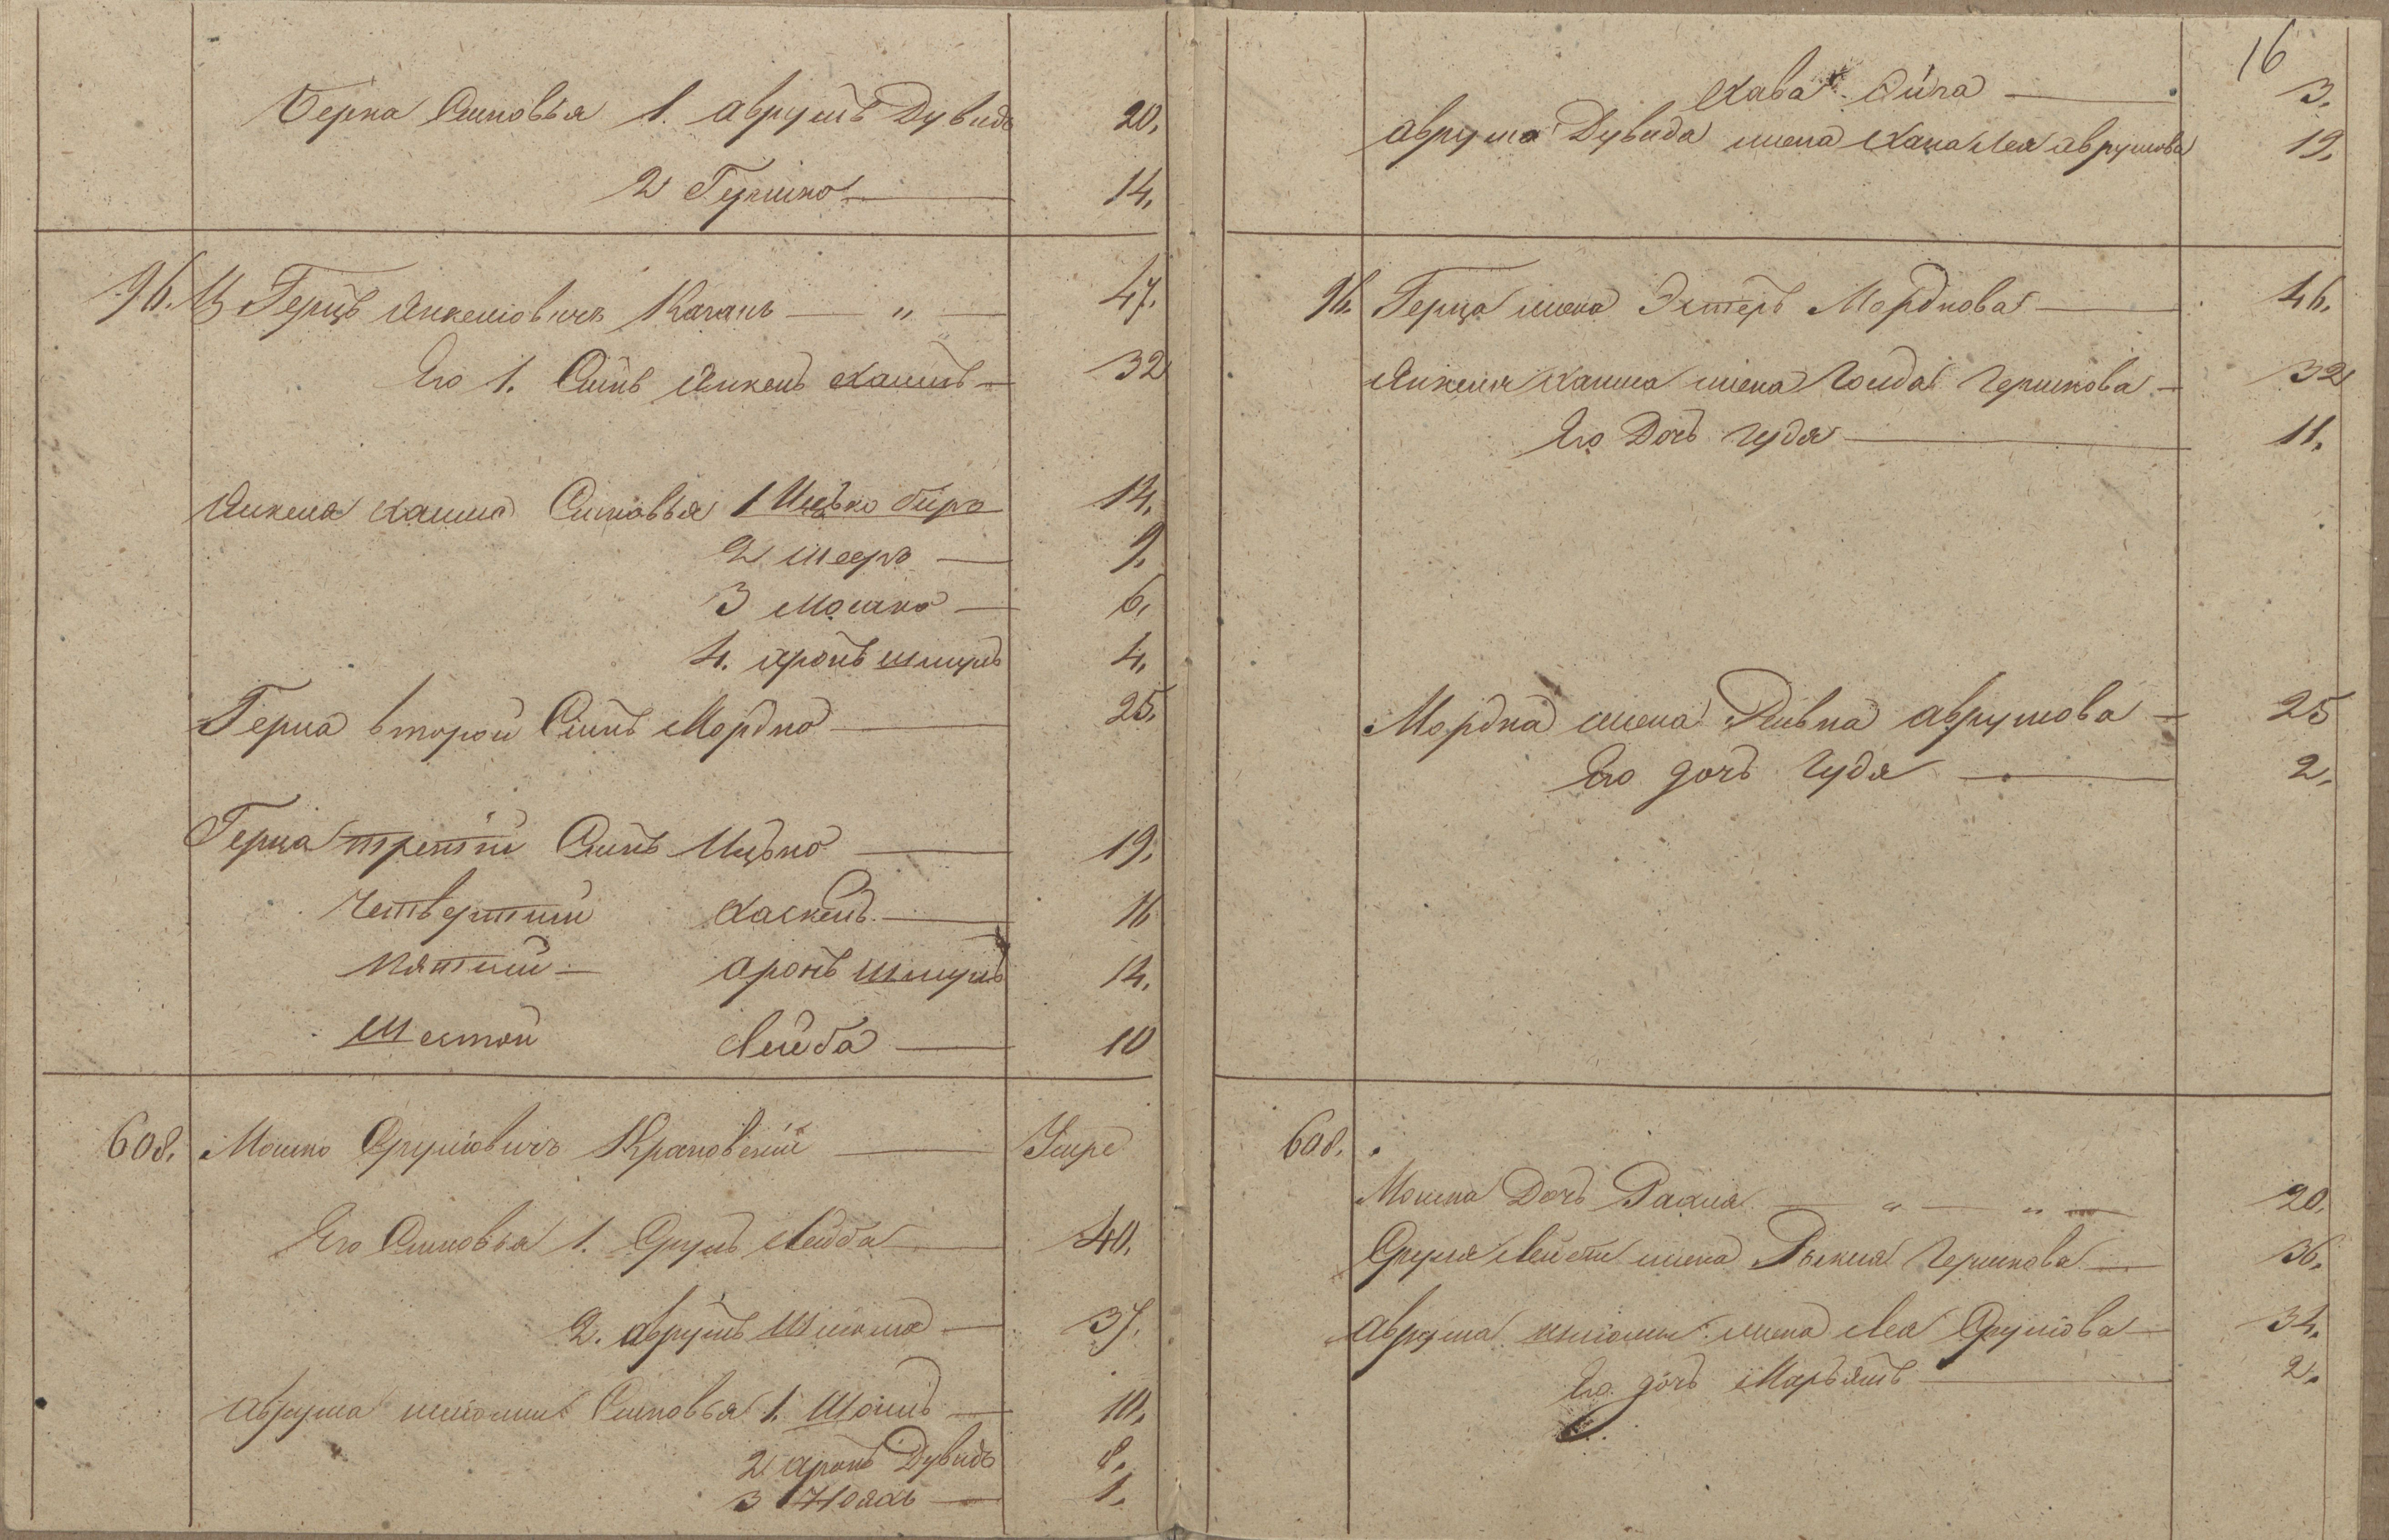 Берка Сыновья 1. Аврумъ Дувидъ 20.
2 Гершко 14.
96. Герцъ Янкелювичъ Каганъ — „ — 47.
Его 1. Сынъ Янкель Хаимъ 32
Янкеля Хаима Сыновья 1 Ицько Беръ 14.
2 Мееръ 9.
3 Мошко 6.
4. Аронъ Шмуль 4.
Герца второй Сынъ Мордко 25.
Герца третий Сынъ Ицько 19.
Четвертый Хаскель 16
Пятый — Аронъ Шмуль 14.
Шестой Лейба 10
608. Мошко Срулювичъ Краковский Умре
Его Сыновья 1. Сруль Лейба 40.
2. Аврумъ Шлиома 37.
Аврума Шлиомы Сыновья 1. Шоиль 10.
2 Аронъ Дувидъ 8.
3 Нояхъ 1.
16
Хава 3.
Аврума Дувида жена Хана Лея Аврумова 19.
96. Герца жена Эстеръ Мордкова 46.
Янкеля Хаима жена Голда Гершкова 32
Его Дочь Гудя 11.
Мордка жена Ривка Аврумова 25
Его дочь Гудя 2.
608.
Мошка Дочь Рахля — „ — „ 20.
Сруля Лейбы жена Рыкля Гершкова 36.
Аврума Шлиомы жена Лея Срулиова 34.
Его дочь Марьямъ 2.